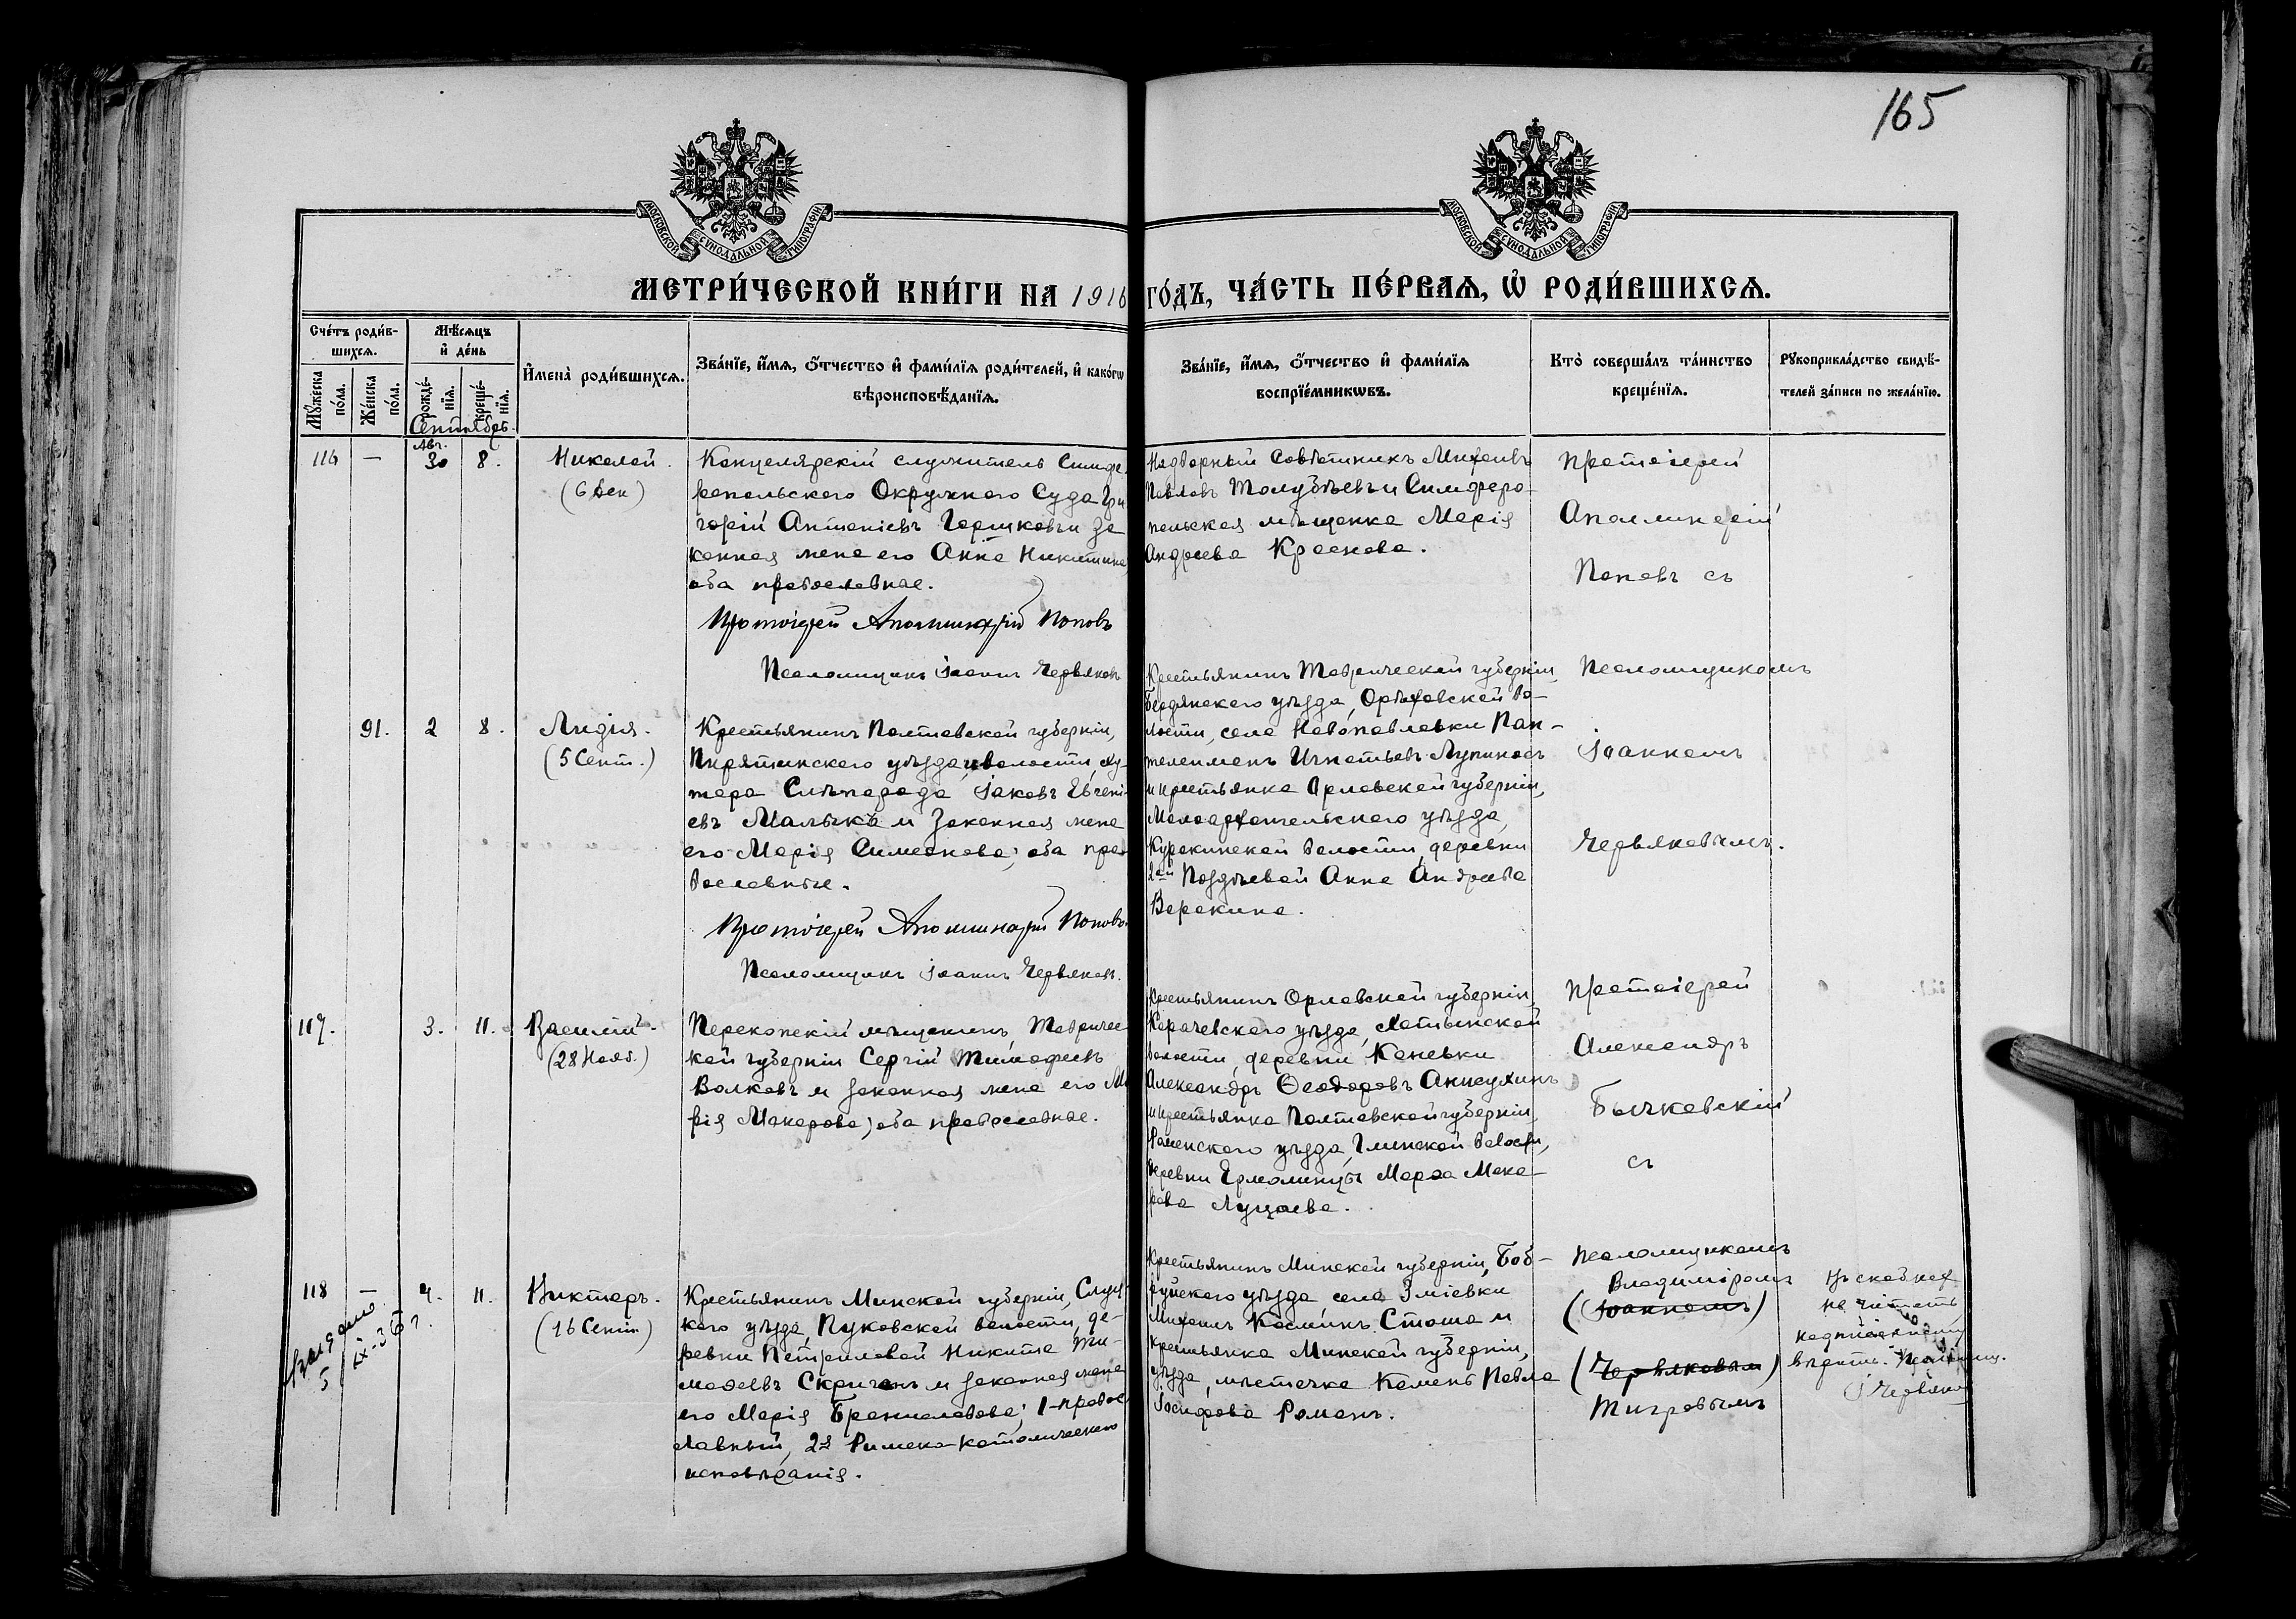 165
МОСКОВСКОЙ СѴНОДАЛЬНОЙ ТИПОГРАФІИ
МОСКОВСКОЙ СѴНОДАЛЬНОЙ ТИПОГРАФІИ
МЕТРИ́ЧЕСКОЙ КНИ́ГИ НА 1916 ГО́ДЪ, ЧА́СТЬ ПЕ́РВАЯ, Ѡ РОДИ́ВШИХСЯ.
Сче́тъ роди́в-
шихся.
Мѣ́сяцъ
и҆ де́нь
Мꙋ́жеска по́ла.
Же́нска по́ла.
рожде́-
нїя.
креще́-
нїя.
Сентябрь.
И҆мена̀ роди́вшихся.
Зва́нїе, и҆́мя, ѻ҆́тчество и҆ фами́лїя роди́телей, и҆ како́гѡ
вѣроисповѣ́данїя.
Зва́нїе, и҆́мя, ѻ҆́тчество и҆ фами́лїя
воспрїе́мникѡвъ.
Кто̀ соверша́лъ та́инство
креще́нїя.
Рꙋкоприкла́дство свидѣ́-
телей за́писи по жела́нїю.
116
—
Авг.
30
8.
Николай.
(6 Дек)
Канцелярскій служитель Симфе-
ропольскаго Окружнаго Суда Гри
горій Антоніевъ Горшковъ и за
конная жена его Анна Никитина,
оба православные.
Протоіерей Аполлинарій Поповъ
Псаломщикъ Іоаннъ Червяковъ
Надворный Совѣтникъ Михаилъ
Павловъ Толубѣевъ и Симферо-
польская мѣщанка Марія
Андреева Краснова.
Протоіерей
Аполлинарій
Поповъ съ
Псаломщикомъ
Іоанномъ
Червяковымъ.
91.
2
8.
Лидія.
(5 Сент.)
Крестьянинъ Полтавской губерніи,
Пирятинскаго уѣзда и волости, ху-
тора Слѣпорода Іаковъ Евгені-
евъ Малычка и законная жена
его Марія Симеонова; оба пра-
вославные.
Протоіерей Аполлинарій Поповъ
Псаломщикъ Іоаннъ Червяковъ.
Крестьянинъ Таврической губерніи,
Бердянскаго уѣзда, Орѣховской во-
лости, села Новопавловки Пан-
телеимонъ Игнатьевъ Лупиносъ
и крестьянка Орловской губерніи,
Малоархангельскаго уѣзда,
Куракинской волости, деревни
2ой Поздѣевой Анна Андреева
Воронина.
117.
3.
11.
Василій.
(28 Нояб.)
Перекопскій мѣщанинъ, Тавричес
кой губерніи Сергій Тимофеевъ
Волковъ и законная жена его Ма
рія Макарова; оба православные.
Крестьянинъ Орловской губерніи,
Карачевскаго уѣзда,
волости, деревни Коневки
Александръ Ѳеодоровъ
и крестьянка Полтавской губерніи,
Роменскаго уѣзда, Глинской волости,
деревни Ермолинцы Марѳа Мака-
рова
Протоіерей
Александръ
Бычковскій
съ
Псаломщикомъ
Владиміромъ
(Іоанномъ)
(Червяковым)
Тигровымъ
118
—
4.
11.
Викторъ.
(16 Сент.)
Выдано
5/IX-36 г.
Крестьянинъ Минской губерніи, Слуц
каго уѣзда, Пуковской волости, де-
ревни Петриловой Никита Ти-
моѳеевъ Скриганъ и законная жена
его Марія Брониславова; 1-правос
лавный, 2я Римско-католическаго
исповѣданія.
Крестьянинъ Минской губерніи, Боб-
руйскаго уѣзда, села Зміевки
Михаилъ Космичъ Стома и
крестьянка Минской губерніи,
уѣзда, мѣстечка Камень Павла
Іосифова Романъ.
въ скобках
не читать
вѣрить. Псаломщ.
І Червяков